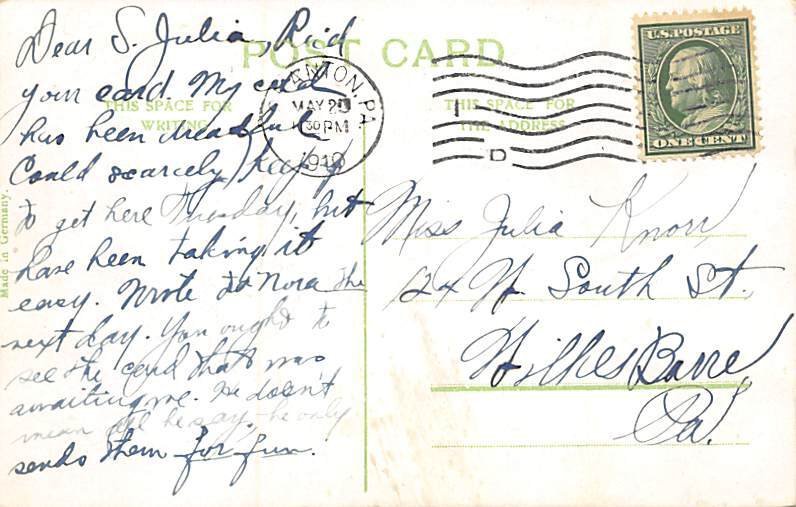 Dear S. Julia, Rec'd
your card. My cold
has been dreadful
Could scarcely keep up
to get here Thursday, but
have been taking it
easy. Wrote to Nora the
next day. You ought to
see the card that was
awaiting me. He doesn't
mean all he says, he only
sends them for fun.
POST CARD
THIS SPACE FOR
WRITING
THIS SPACE FOR
THE ADDRESS
Made in Germany.
ANTON, PA.
MAY 2
30 PM
1910
D
U.S. POSTAGE
ONE CENT
Miss Julia Knorr
24 W South St.
Wilkes Barre
Pa.